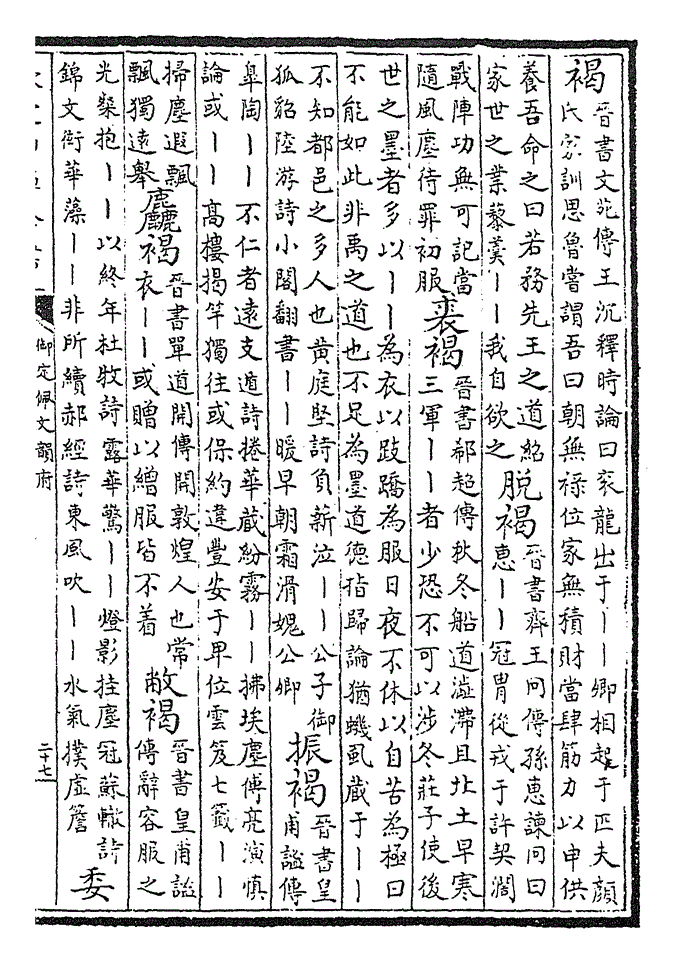 褐
晉書文苑傳王沉釋時論曰衮龍出于丨丨卿相起于匹夫顔
氏家訓思魯嘗謂吾曰朝無祿位家無積財當肆筋力以申供
養吾命之曰若務先王之道紹
家世之業藜羹丨丨我自欲之
脱褐
晉書齊王冏傳孫惠諫冏曰
惠丨丨冠胄從戎于許契濶
戰陣功無可記當
隨風塵待罪初服
裘褐
晉書郗超傳秋冬船道澁滯且北土早寒
三軍丨丨者少恐不可以涉冬莊子使後
世之墨者多以丨丨為衣以跂蹻為服日夜不休以自苦為極曰
不能如此非禹之道也不足為墨道德指歸論猶蟣虱蔵于丨丨
不知都邑之多人也黄庭堅詩負薪泣丨丨公子御
狐貂陸游詩小閣翻書丨丨暖早朝霜滑媿公卿
振褐
晉書皇
甫謐傳
臯陶丨丨不仁者逺支遁詩捲華蔵紛霧丨丨拂埃塵傅亮演慎
論或丨丨髙樓揭竿獨往或保約違豐安于卑位雲笈七籖丨丨
掃塵遐飄
飄獨逺舉
麤褐
晉書單道開傳開敦煌人也常
衣丨丨或贈以繒服皆不着
敝褐
晉書皇甫謐
傳辭容服之
光粲抱丨丨以終年杜牧詩露華驚丨丨燈影挂塵冠蘇轍詩
錦文衒華藻丨丨非所續郝經詩東風吹丨丨水氣撲虚簷
委
御定佩文韻府
二十七